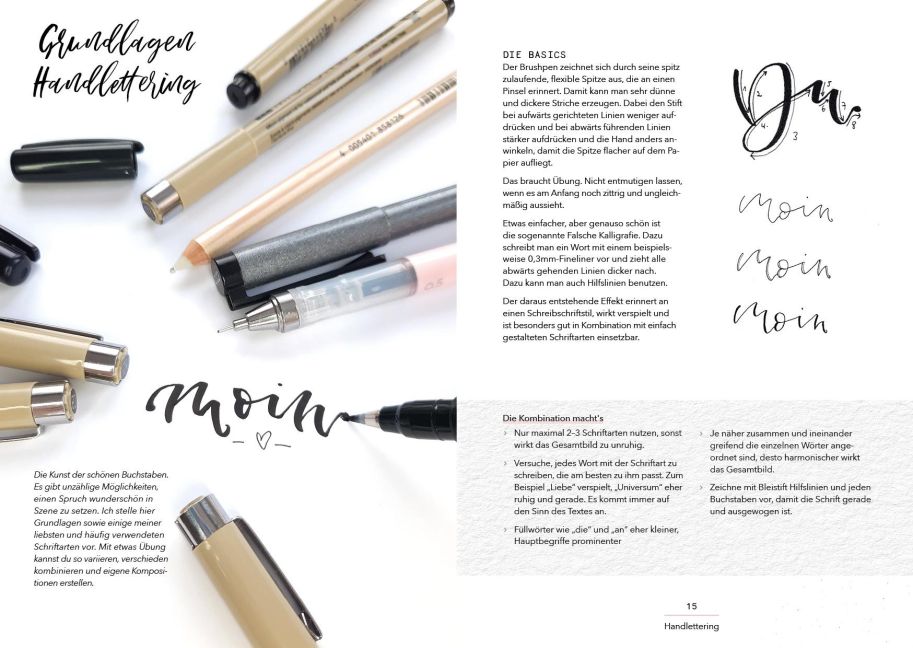 Grundlagen
Handlettering
4 005401 858126
0.5
moin
Die Kunst der schönen Buchstaben.
Es gibt unzählige Möglichkeiten,
einen Spruch wunderschön in
Szene zu setzen. Ich stelle hier
Grundlagen sowie einige meiner
liebsten und häufig verwendeten
Schriftarten vor. Mit etwas Übung
kannst du so variieren, verschieden
kombinieren und eigene Komposi-
tionen erstellen.
DIE BASICS
Der Brushpen zeichnet sich durch seine spitz
zulaufende, flexible Spitze aus, die an einen
Pinsel erinnert. Damit kann man sehr dünne
und dickere Striche erzeugen. Dabei den Stift
bei aufwärts gerichteten Linien weniger auf-
drücken und bei abwärts führenden Linien
stärker aufdrücken und die Hand anders an-
winkeln, damit die Spitze flacher auf dem Pa-
pier aufliegt.
Das braucht Übung. Nicht entmutigen lassen,
wenn es am Anfang noch zittrig und ungleich-
mäßig aussieht.
Etwas einfacher, aber genauso schön ist
die sogenannte Falsche Kalligrafie. Dazu
schreibt man ein Wort mit einem beispiels-
weise 0,3mm-Fineliner vor und zieht alle
abwärts gehenden Linien dicker nach.
Dazu kann man auch Hilfslinien benutzen.
Der daraus entstehende Effekt erinnert an
einen Schreibschriftstil, wirkt verspielt und
ist besonders gut in Kombination mit einfach
gestalteten Schriftarten einsetzbar.
Du
1 2 3 4. 5 6 7 8
moin
moin
moin
Die Kombination macht's
› Nur maximal 2–3 Schriftarten nutzen, sonst
wirkt das Gesamtbild zu unruhig.
› Versuche, jedes Wort mit der Schriftart zu
schreiben, die am besten zu ihm passt. Zum
Beispiel „Liebe“ verspielt, „Universum“ eher
ruhig und gerade. Es kommt immer auf
den Sinn des Textes an.
› Füllwörter wie „die“ und „an“ eher kleiner,
Hauptbegriffe prominenter
› Je näher zusammen und ineinander
greifend die einzelnen Wörter ange-
ordnet sind, desto harmonischer wirkt
das Gesamtbild.
› Zeichne mit Bleistift Hilfslinien und jeden
Buchstaben vor, damit die Schrift gerade
und ausgewogen ist.
15
Handlettering